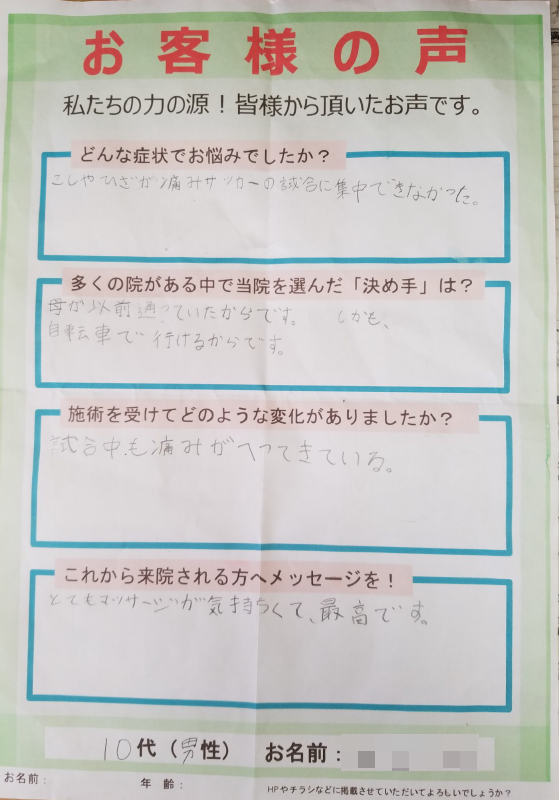 お客様の声
私たちの力の源！皆様から頂いたお声です。
どんな症状でお悩みでしたか？
こしやひざが痛みサッカーの試合に集中できなかった。
多くの院がある中で当院を選んだ「決め手」は？
母が以前通っていたからです。 しかも、
自転車で行けるからです。
施術を受けてどのような変化がありましたか？
試合中も痛みがへってきている。
これから来院される方へメッセージを！
とてもマッサージが気持ちくて、最高です。
10代（男性） お名前：
お名前： 年齢： HPやチラシなどに掲載させていただいてよろしいでしょうか？